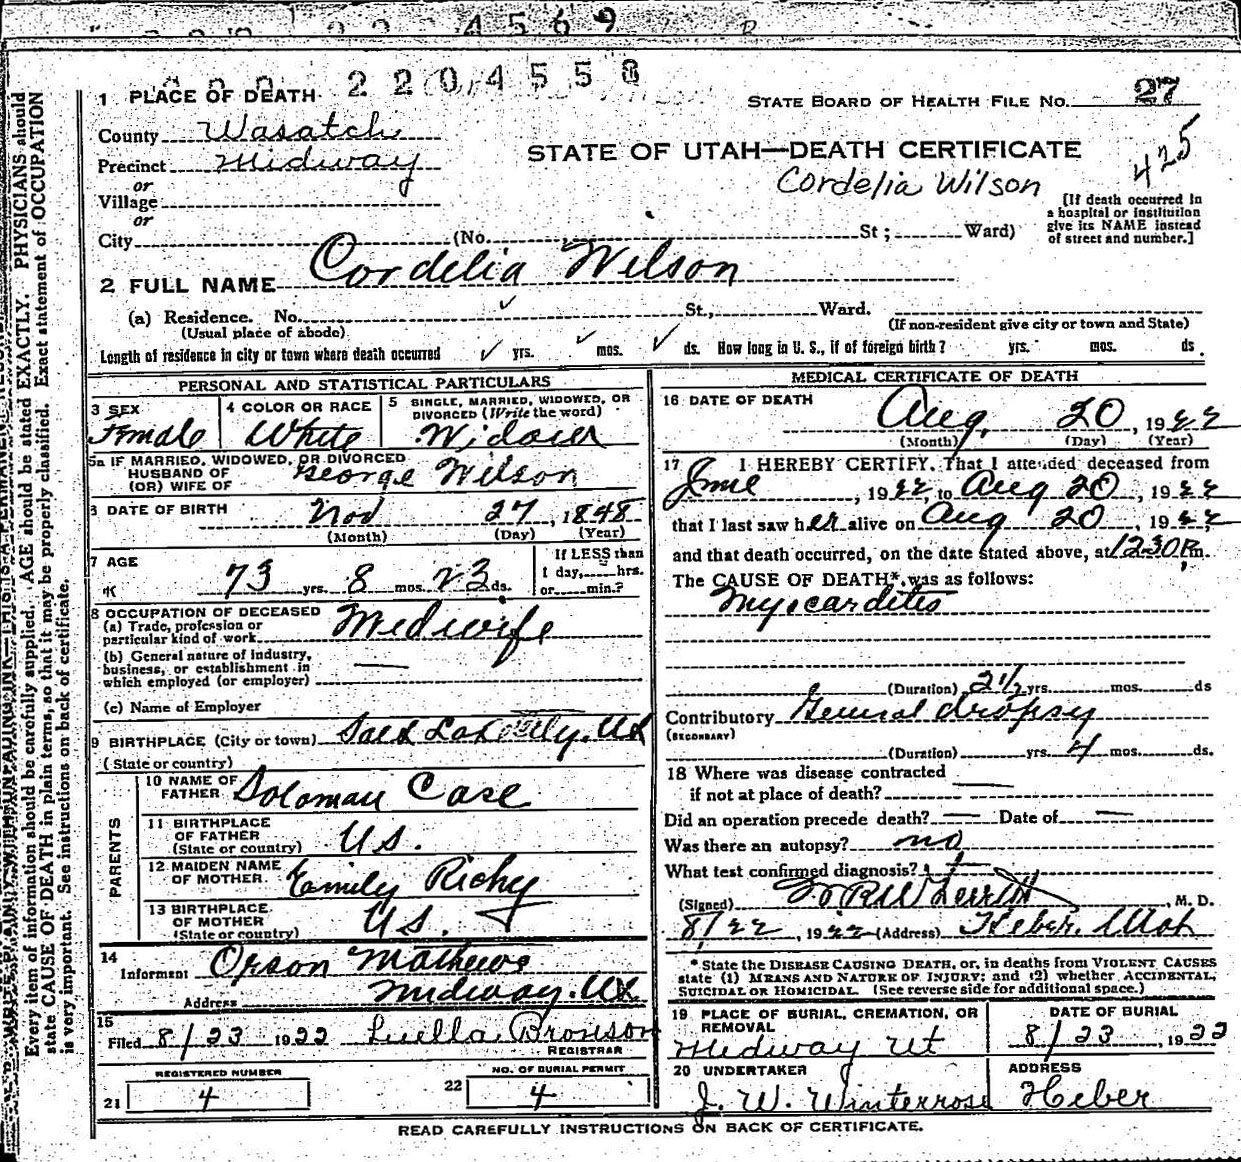 4569
2204558
1 PLACE OF DEATH
STATE BOARD OF HEALTH FILE NO. 27
County Wasatch
STATE OF UTAH—DEATH CERTIFICATE
425
Precinct Midway
Cordelia Wilson
or
Village
or
[If death occurred in
a hospital or institution
give its NAME instead
of street and number.]
City (No. St; Ward)
2 FULL NAME Cordelia Wilson
(a) Residence. No. St., Ward.
(Usual place of abode) (If non-resident give city or town and State)
Length of residence in city or town where death occurred yrs. mos. ds. How long in U. S., if of foreign birth? yrs. mos. ds
PERSONAL AND STATISTICAL PARTICULARS
3 SEX
Female
4 COLOR OR RACE
White
5 SINGLE, MARRIED, WIDOWED, OR
DIVORCED (Write the word)
Widower
5a IF MARRIED, WIDOWED, OR DIVORCED
HUSBAND OF
(OR) WIFE OF
George Wilson
6 DATE OF BIRTH Nov 27, 1848
(Month) (Day) (Year)
7 AGE
73 yrs. 8 mos. 23 ds.
If LESS than
1 day, hrs.
or min.?
8 OCCUPATION OF DECEASED
(a) Trade, profession or
particular kind of work Midwife
(b) General nature of Industry,
business, or establishment in
which employed (or employer)
(c) Name of Employer
9 BIRTHPLACE (City or town) Salt Lake City, Ut
(State or country)
PARENTS
10 NAME OF
FATHER Soloman Case
11 BIRTHPLACE
OF FATHER
(State or country) U.S.
12 MAIDEN NAME
OF MOTHER Emily Richy
13 BIRTHPLACE
OF MOTHER
(State or country) U.S.
14
Informent Orson Mathews
Address Midway, Ut
15
Filed 8/23 1922 Luella Bronson
REGISTRAR
REGISTERED NUMBER
21 4
NO. OF BURIAL PERMIT
22 4
MEDICAL CERTIFICATE OF DEATH
16 DATE OF DEATH
Aug, 20, 1922
(Month) (Day) (Year)
17 I HEREBY CERTIFY, That I attended deceased from
June, 1922, to Aug 20, 1922
that I last saw her alive on Aug 20, 1922
and that death occurred, on the date stated above, at 1230 P.m.
The CAUSE OF DEATH* was as follows:
Myocardites
(Duration) 2 1/2 yrs. mos. ds
Contributory General dropsy
(SECONDARY)
(Duration) yrs. 4 mos. ds.
18 Where was disease contracted
if not at place of death?
Did an operation precede death? — Date of —
Was there an autopsy? no
What test confirmed diagnosis?
(Signed) , M. D.
8/22, 1922 (Address) Heber, Utah
* State the DISEASE CAUSING DEATH, or, in deaths from VIOLENT CAUSES
state (1) MEANS AND NATURE OF INJURY; and (2) whether ACCIDENTAL,
SUICIDAL OR HOMICIDAL. (See reverse side for additional space.)
19 PLACE OF BURIAL, CREMATION, OR
REMOVAL
Midway Ut
DATE OF BURIAL
8/23, 1922
20 UNDERTAKER
J. W. Winterrose
ADDRESS
Heber
READ CAREFULLY INSTRUCTIONS ON BACK OF CERTIFICATE.
Every item of information should be carefully supplied. AGE should be stated EXACTLY. PHYSICIANS should
state CAUSE OF DEATH in plain terms, so that it may be properly classified. Exact statement of OCCUPATION
is very important. See instructions on back of certificate.